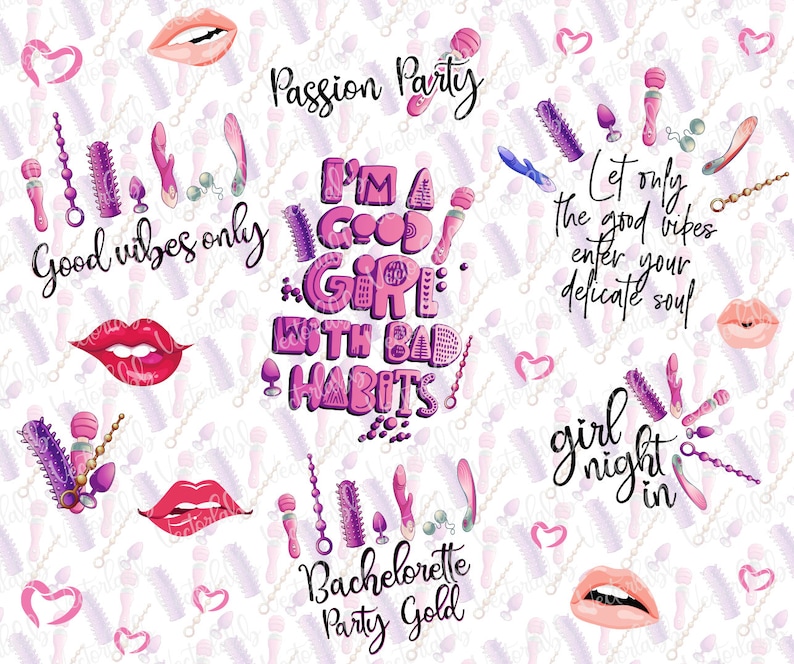 Passion Party
Good vibes only
I'M A
GOOD
GIRL
WITH BAD
HABITS
Let only
the good vibes
enter your
delicate soul
girl
night
in
Bachelorette
Party Gold
Vectorlabb